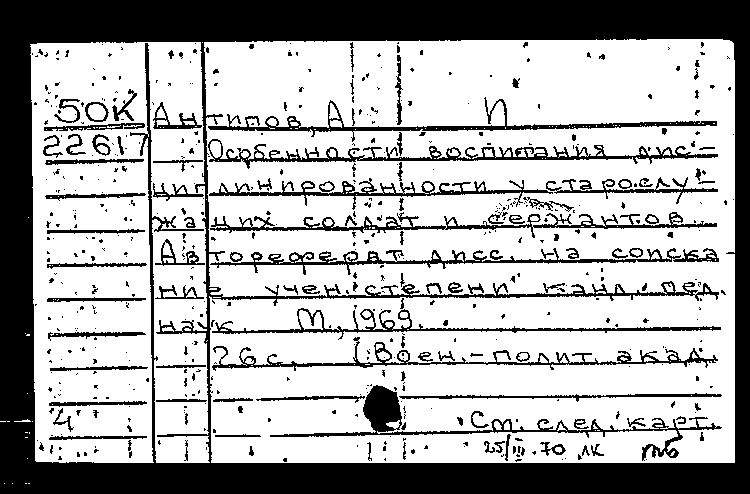 50К Антипов, А И
22617 Особенности воспитания дис-
циплинированности у старослу-
жащих солдат и сержантов.
Автореферат дисс. на соиска-
ние учен. степени канд. пед.
наук. М., 1969.
26 с. (Воен.-полит. акад.
4 См. след. карт.
25/III.70 ЛК